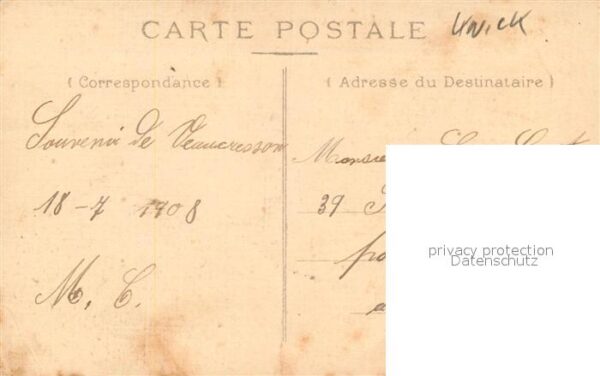 CARTE POSTALE
Knick
(Correspondance)
(Adresse du Destinataire)
Souvenir de Vaucresson
18-7 1908
M. C.
39
privacy protection
Datenschutz